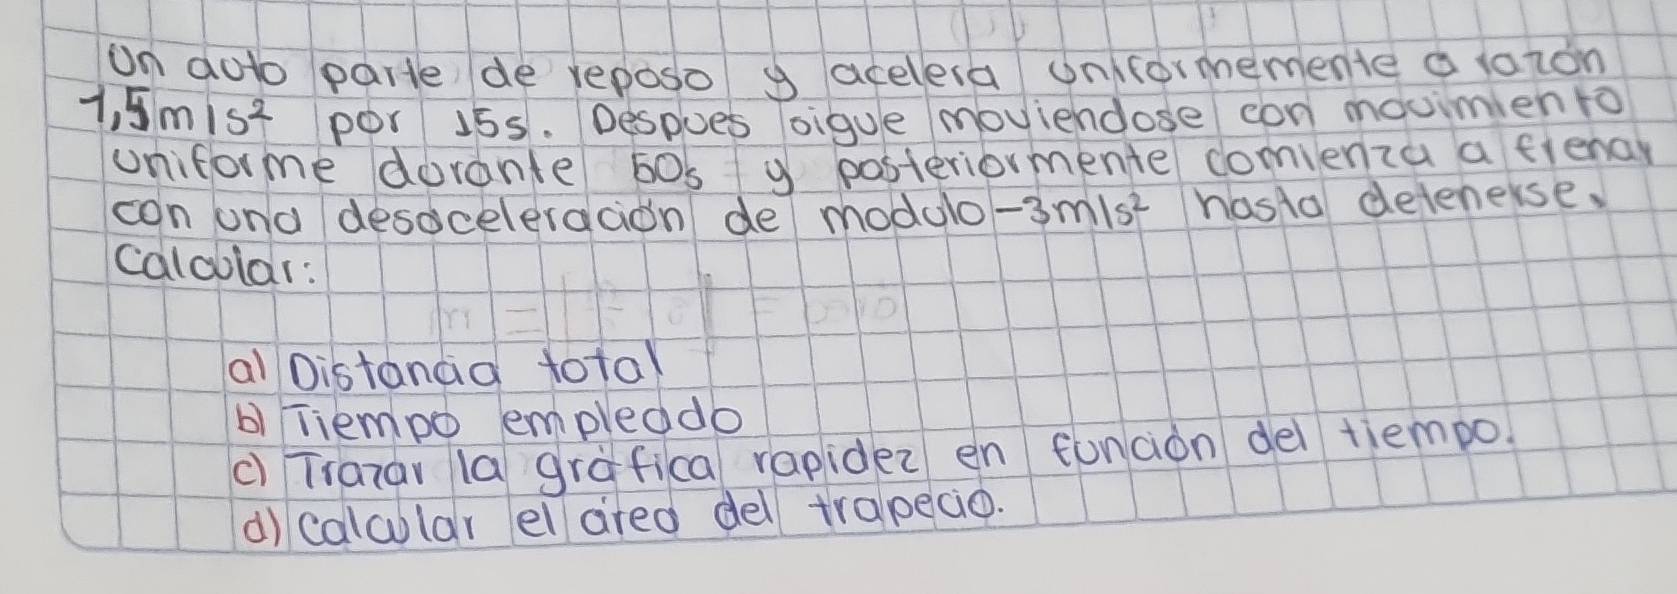 Un auto parte de reposo y acelera uniformemente a razón
1,5 m/s² por 15s. Despues sigue moviendose con movimiento
uniforme durante 50s y posteriormente comienza a frenar
con una desaceleración de modulo -3m/s² hasta detenerse.
calcular:
a) Distancia total
b) Tiempo empleado
c) Trazar la gráfica rapidez en función del tiempo.
d) calcular el área del trapecio.